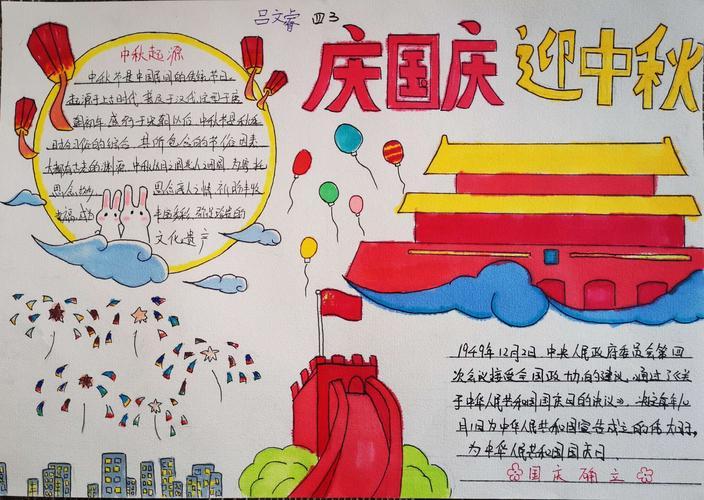 吕文睿 四3
庆国庆 迎中秋
中秋起源
中秋节是中国民间的传统节日。
起源于上古时代,普及于汉代,定型于唐
朝初年,盛行于宋朝以后。中秋节是秋季
时令习俗的综合,其所包含的节俗因素
大都有古老的渊源。中秋以月之圆兆人之团圆,为寄托
思念故 思念亲人之情,祈盼丰收
幸福,成为 丰富多彩、弥足珍贵的
文化遗产
1949年12月2日,中央人民政府委员会第四
次会议接受全国政协的建议,通过了《关
于中华人民共和国国庆日的决议》,决定每年
月1日为中华人民共和国宣告成立的伟大日子,
为中华人民共和国国庆日。
国庆确立